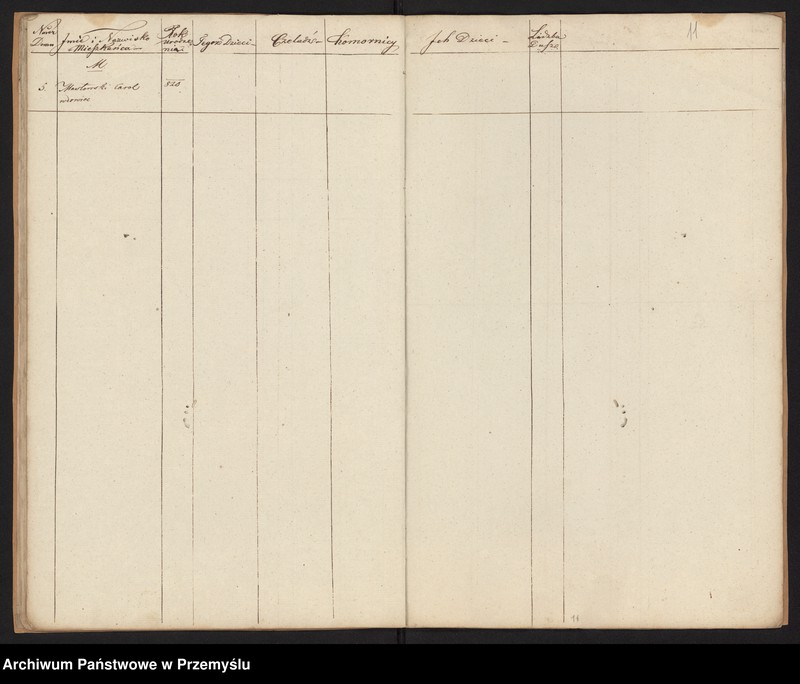 Numr Domu
Imie i Nazwisko Mieszkańca
Rok urodzenia
Jego Dzieci
Czeladź
Komornicy
Ich Dzieci
Liczba Dusz
11
M
5.
Carol
820
11
Archiwum Państwowe w Przemyślu